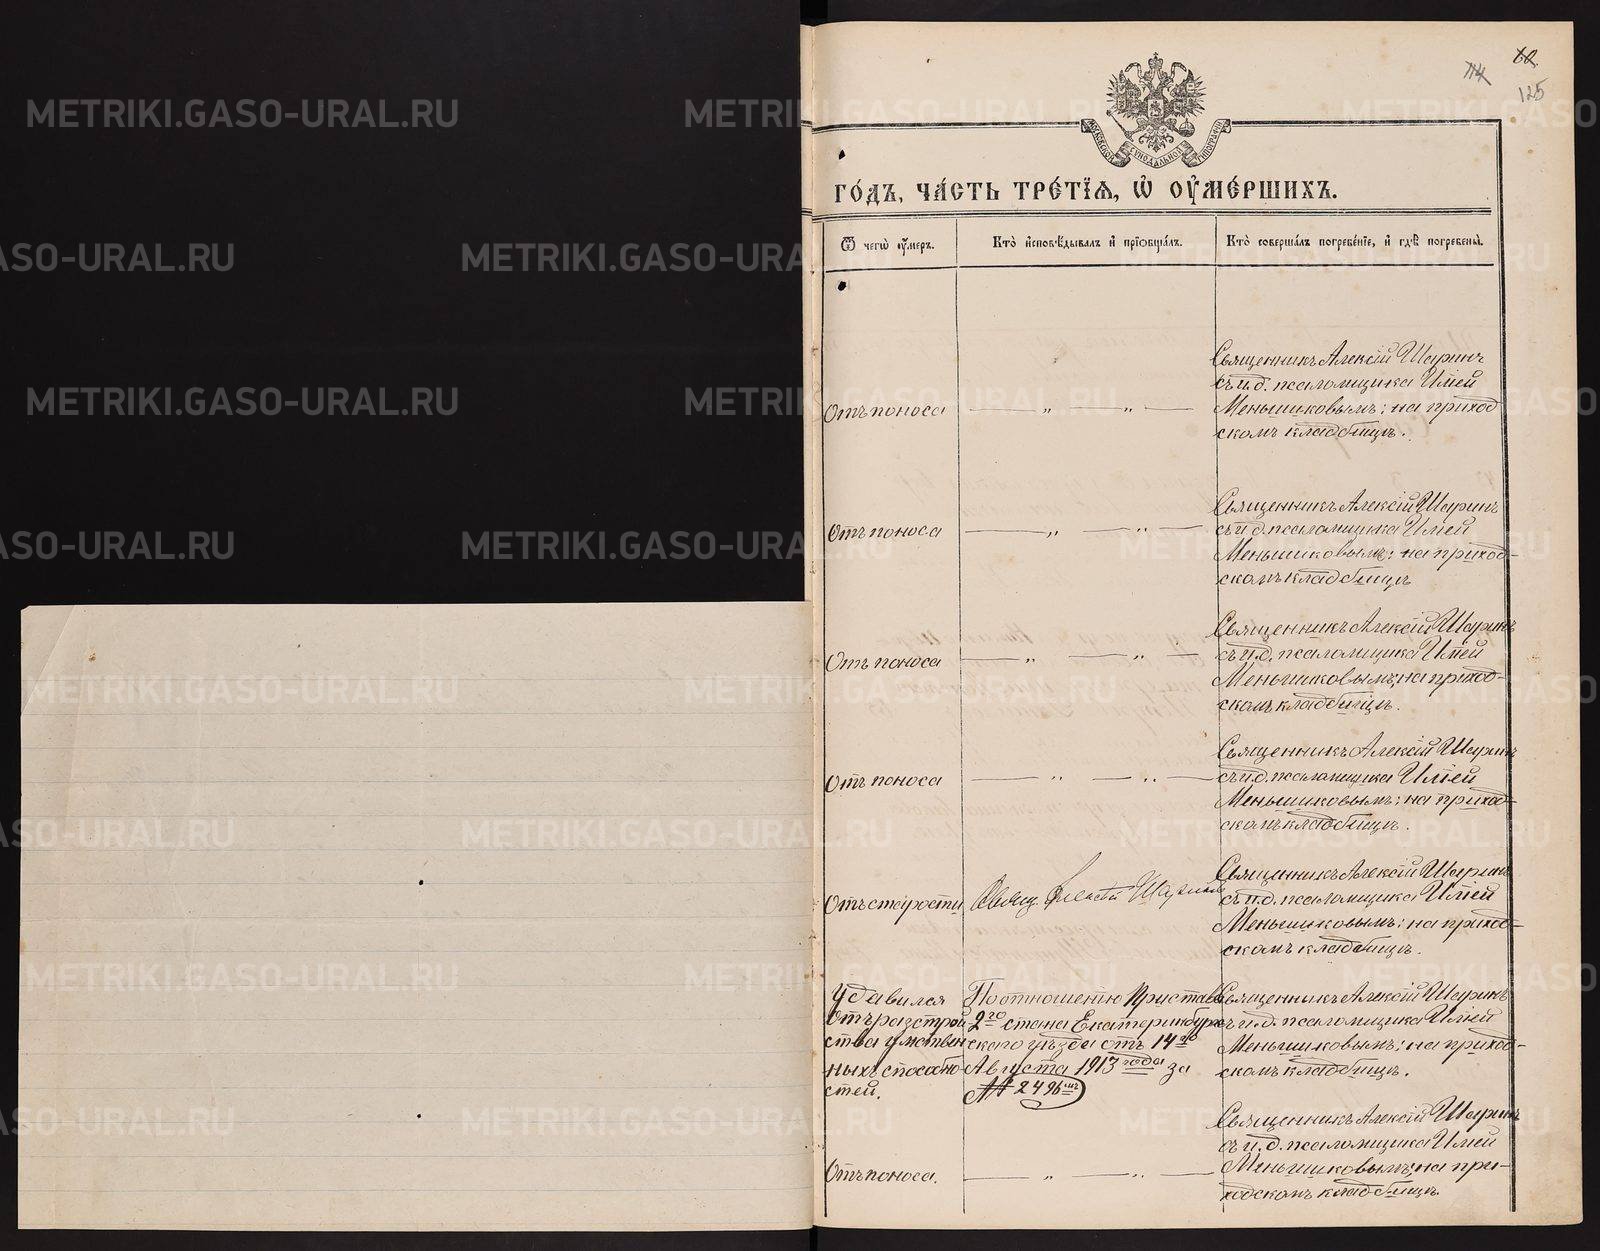 60.
114
125
МОСКОВСКОЙ СѴНОДАЛЬНОЙ ТИПОГРАФІИ
ГО́ДЪ, ЧА́СТЬ ТРЕ́ТЇѦ, Ѡ҆ ОУ҆МЕ́РШИХЪ.
Ѿ чегѡ̀ оу҆́меръ.
Кто̀ и҆сповѣ́дывалъ и҆ прїѡбща́лъ.
Кто̀ соверша́лъ погребе́нїе, и҆ гдѣ̀ погребены̀.
Отъ поноса
— „ — „ —
Священникъ Алексій Шаринъ
съ и.д. псаломщика Иліей
Меньшиковымъ; на приход
скомъ кладбищѣ.
Отъ поноса
— „ — „ —
Священникъ Алексій Шаринъ
съ и.д. псаломщика Иліей
Меньшиковымъ; на приход-
скомъ кладбищѣ
Отъ поноса
— „ — „ —
Священникъ Алексій Шаринъ
съ и.д. псаломщика Иліей
Меньшиковымъ; на приход-
скомъ кладбищѣ.
Отъ поноса
— „ — „ —
Священникъ Алексій Шаринъ
съ и.д. псаломщика Иліей
Меньшиковымъ; на приход-
скомъ кладбищѣ.
Отъ старости
Свящ. Алексій Шаринъ
Священникъ Алексій Шаринъ
съ и.д. псаломщика Иліей
Меньшиковымъ; на приход-
скомъ кладбищѣ.
Удавился
отъ разстрой
ства умствен
ныхъ способно-
стей.
По отношенію Пристава
2го стана Екатеринбург
скаго уѣзда отъ 14го
Августа 1913 года за
№ 2496мъ
Священникъ Алексій Шаринъ
съ и.д. псаломщика Иліей
Меньшиковымъ; на приход-
скомъ кладбищѣ.
Отъ поноса.
— „ — „ —
Священникъ Алексій Шаринъ
съ и.д. псаломщика Иліей
Меньшиковымъ; на при-
ходскомъ кладбищѣ.
METRIKI.GASO-URAL.RU